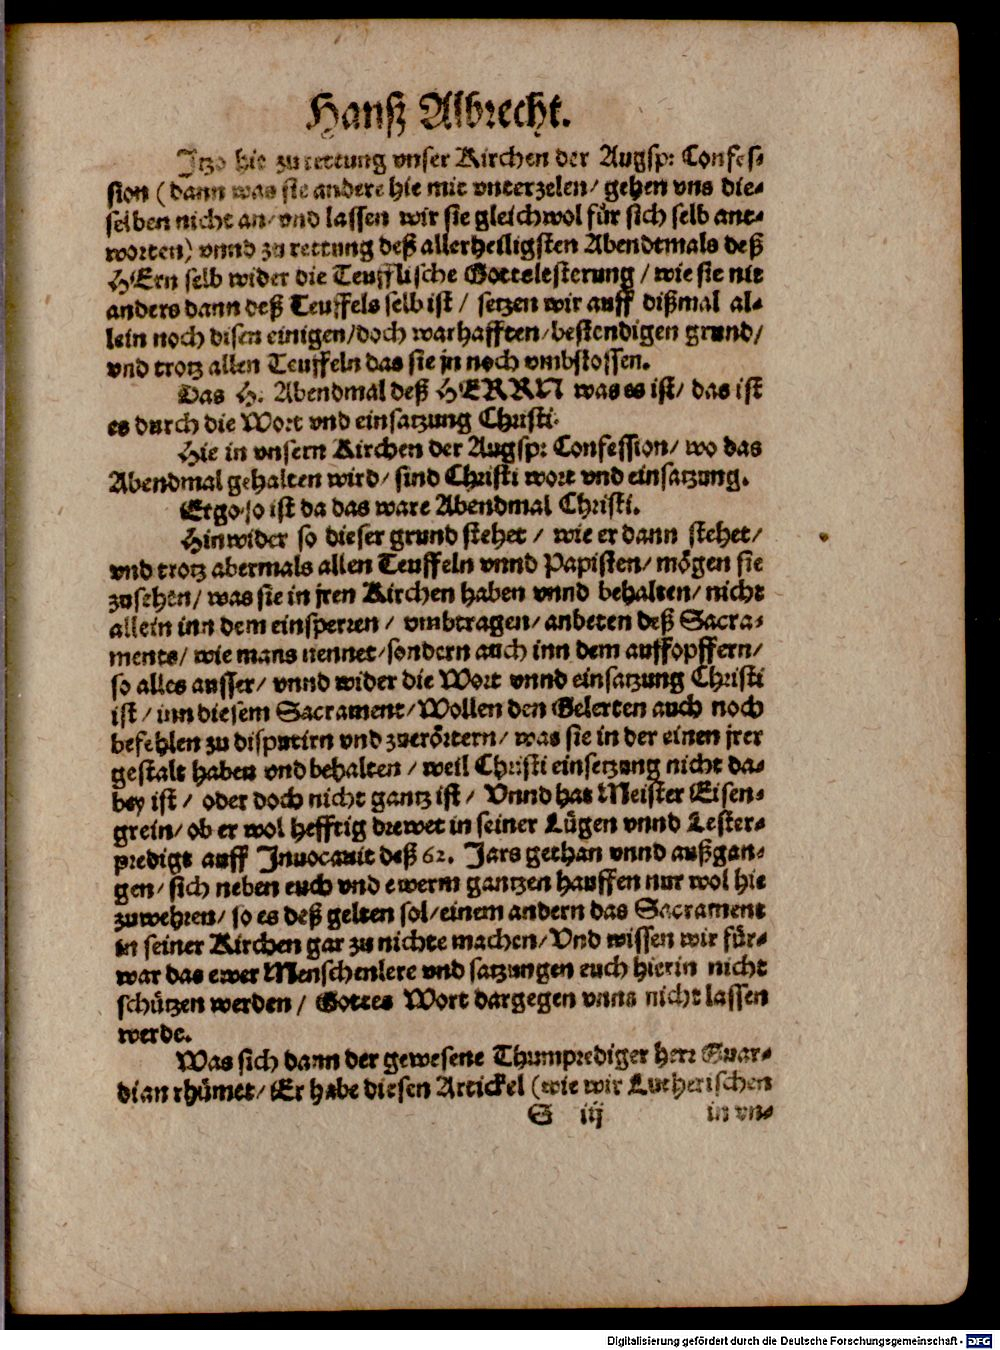 Hanß Albrecht.
Jtzo hie zu rettung vnser Kirchen der Augsp: Confes-
sion (dann was sie andere hie mit vnterzelen/ gehen vns die-
selben nicht an/ vnd lassen wir sie gleichwol für sich selb ant-
worten) vnnd zu rettung deß allerheiligsten Abendtmals deß
HErn selb wider die Teufflische Gottslesterung / wie sie nit
anders dann deß Teuffels selb ist / setzen wir auff dißmal al-
lein noch disen einigen/doch warhafften/bestendigen grund/
vnd trotz allen Teuffeln das sie jn noch vmbstossen.
Das H. Abendmal deß HERRN was es ist/ das ist
es durch die Wort vnd einsatzung Christi.
Hie in vnsern Kirchen der Augsp: Confession/ wo das
Abendmal gehalten wird/ sind Christi wort vnd einsatzung.
Ergo so ist da das ware Abendmal Christi.
Hinwider so dieser grund stehet / wie er dann stehet/
vnd trotz abermals allen Teuffeln vnnd Papisten/ mögen sie
zusehen/ was sie in jren Kirchen haben vnnd behalten/ nicht
allein inn dem einsperren / vmbtragen/ anbeten deß Sacra-
ments/ wie mans nennet/sondern auch inn dem auffopffern/
so alles ausser/ vnnd wider die Wort vnnd einsatzung Christi
ist / inn diesem Sacrament/ Wollen den Gelerten auch noch
befehlen zu disputirn vnd zuerörtern/ was sie in der einen jrer
gestalt haben vnd behalten / weil Christi einsetzung nicht da-
bey ist / oder doch nicht gantz ist / Vnnd hat Meister Eisen-
grein/ ob er wol hefftig drewet in seiner Lügen vnnd Lester-
predigt auff Jnuocauit deß 62. Jars gethan vnnd außgan-
gen/ sich neben euch vnd ewerm gantzen hauffen nur wol hie
zuwehren/ so es deß gelten sol/einem andern das Sacrament
in seiner Kirchen gar zu nichte machen/ Vnd wissen wir für-
war das ewer Menschenlere vnd satzungen euch hierin nicht
schützen werden / Gottes Wort dargegen vnns nicht lassen
werde.
Was sich dann der gewesene Thumprediger herr Guar-
dian rhümet/ Er habe diesen Artickel (wie wir Lutherischen
S iij in vn-
Digitalisierung gefördert durch die Deutsche Forschungsgemeinschaft - DFG